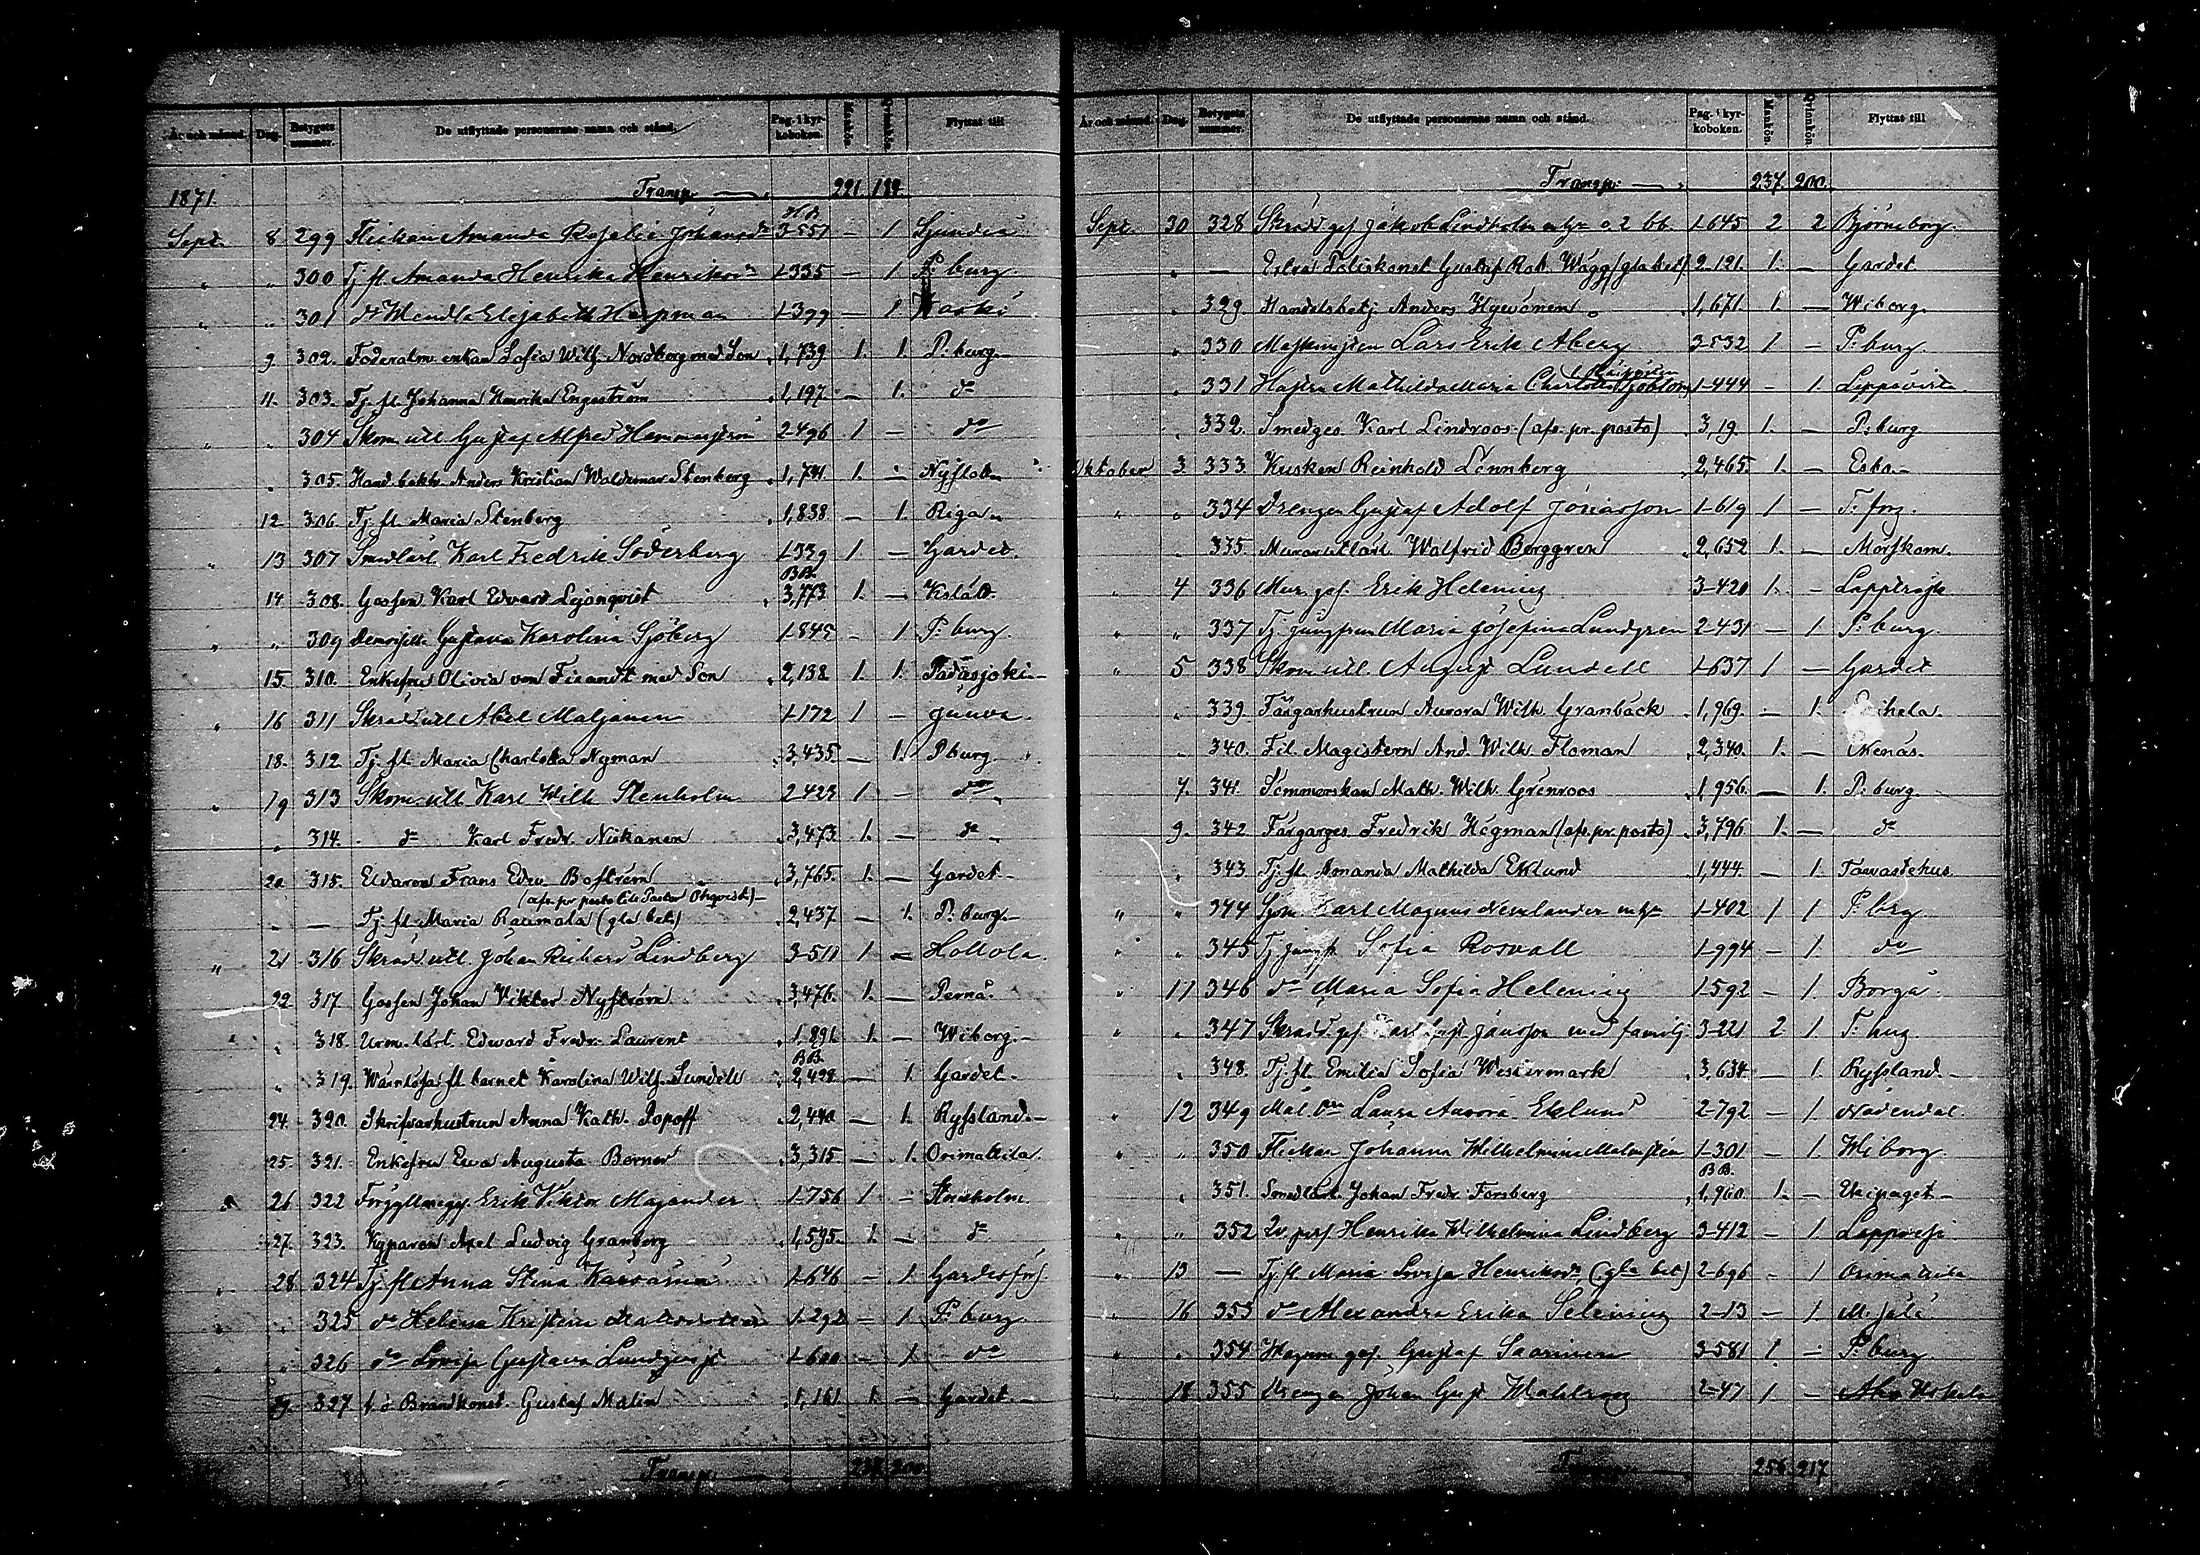 År och månad. Dag. Betygets nummer. De utflyttade personernas namn och stånd. Pag. i kyrkoboken. Mankön. Qvinnkön. Flyttat till
1871 Transp. 221. 188.
Sept. 8 299 Flickan Amanda Rosalia Johansdr 3-551 — 1 Sjundeå
" " 300 Tj. fl. Amanda Henrika Henriksdr 1-335 — 1 P:burg.
" " 301 do Wendla Elisabeth Harpman 1-399 — 1
9 302. Foderalm. enkan Sofia Wilh. Nordberg med Son 1,739 1. 1. P:burg.
11. 303. Tj. fl. Johanna Henrika Engeström 1,197 — 1. do
" " 304 Skom. utl Gustaf Alfred Hammarström 2-496 1 — do
" 305. Hand. bokh. Anders Kristian Waldemar Stenberg 1,741. 1. — Nystad
12 306. Tj. fl. Maria Stenberg 1,838. — 1. Riga
" 13 307 Smedlärl Karl Fredrik Söderberg 1-339 1 — Gardet
14 308. Gossen Karl Edvard Lejonqvist BB. 3,773 1. —
" " 309 Demoiselle Gustava Karolina Sjöberg 1-845 — 1 P:burg.
15. 310. Enkefru Olivia von Fieandt med Son 2,138 1. 1. Padasjoki
" 16 311 Skradd. utl Abel Maljanen 1-172 1 — Juuva
18. 312 Tj. fl. Maria Charlotta Nyman 3,435 — 1. P:burg.
" 19 313 Skom. utl Karl Wilh Stenholm 2-423 1 — do
" 314. do Karl Fredr. Niskanen 3,473. 1. — do
20 315. Eldaren Frans Edv. Boström 3,765. 1. — Gardet
(afs. pr posto till Pastor Öhqvist)
" — Tj. fl. Maria Raumala (gla bet) 2,437 — 1. P:burg.
" 21 316 Skrad. utl. Johan Richard Lindberg 3-511 1 — Hollola.
22 317 Gossen Johan Viktor Nyström 3,476. 1. — Pernå.
" " 318. Urm. lärl. Edward Fredr. Laurent 1,891. 1. — Wiborg.
" 319. Wärnlösa fl. barnet Karolina Wilh. Sundell BB. 2,498 — 1. Gardet.
24. 320. Skrifvarhustrun Anna Kath. Popoff 2,440 — 1. Ryssland.
25. 321. Enkefru Eva Augusta Berner 3,315. — 1. Orimattila.
26 322 Erik Viktor Majander 1-756 1 —
27. 323. Kyparen Axel Ludvig Granberg 1,595. 1. — do
" 28 324 Tj. fl Anna Stina 1-646 — 1
" " 325 do Helena Kristina 1-292 — 1 P:burg.
" " 326 do Lovisa Gustava Lundqvist 1-600 — 1. do
29. 327 f. d. Brandkonst. Gustaf Malin 1,161 1. — Gardet.
Transp. 237. 200.
År och månad. Dag. Betygets nummer. De utflyttade personernas namn och stånd. Pag. i kyrkoboken. Mankön. Qvinnkön. Flyttat till
Transp. 237. 200.
Sept. 30 328 Skradd. ges. Jakob Lindholm m. h. o. 2 bb. 1-645 2 2 Björneborg.
" — Extra Poliskonst Gustaf Rob. Wägg (gla bet) 2-121. 1. — Gardet
" 329. Handelsbetj. Anders Hyvönen 1,671. 1. — Wiborg.
" 330 Maskinisten Lars Erik Åberg 3-532 1 — P:burg.
" 331 Hustru Mathilda Maria Charlotta 1-444 — 1.
" 332. Smedges. Karl Lindroos (afs. pr. posto) 3,19. 1. — P:burg
Oktober 3. 333. Kusken Reinhold Lönnberg 2,465. 1. — Esbo.
" " 334 Drengen Gustaf Adolf Jonasson 1-619 1 —
" 335. Murarelärl. Walfrid Berggren 2,652 1. — Mörskom.
" 4 336 Mur. ges. Erik Helenius 3-420 1. —
" " 337 Tj. jungfrun Maria Josefina Lundgren 2-431 — 1 P:burg.
" 5 338 Skom. utl. August Lundell 1-637 1 — Gardet
" 339. Färgarhustrun Aurora Wilh. Granbäck 1,969. — 1.
" 340. Fil. Magistern And. Wilh. Floman 2,340. 1. — Ekenäs.
7. 341. Sömmerskan Math. Wilh. Grönroos 1,956. — 1. P:burg.
9. 342. Färgarges. Fredrik Högman (afs. pr. posto) 3,796 1. — do
" 343. Tj. fl. Amanda Mathilda Eklund 1,444. — 1. Tavastehus
" " 344 Karl Magnus m. h. 1-402 1 1 P:brg
" " 345 Tj. jungfr Sofia Rosvall 1-994 — 1. do
" 11 346 do Maria Sofia Helenius 1-592 — 1. Borgå.
" " 347 Skradd. ges. Karl Gust. Jansson med familj 3-221 2. 1.
" 348. Tj. fl. Emilia Sofia Westermark 3,634. — 1. Ryssland.
" 12 349 Laura Aurora Eklund 2-792 — 1. Nådendal.
" " 350 Flickan Johanna Wilhelmina 1-301 — 1 Wiborg.
" 351. Smedlärl. Johan Fredr. Forsberg BB. 1,960. 1. —
" 352 Henrika Wilhelmina Lindberg 3-412 — 1
" 13 — Tj. fl. Maria Lovisa Henriksdr (gla bet) 2-696 — 1 Orimattila
" 16 353 do Alexandra Erika Selenius 2-13 — 1.
" " 354 ges. Gustaf Saarinen 3-581 1. — P:burg.
" 18. 355 Drengen Johan Gust 2-47 1 —
Transp. 256. 217.